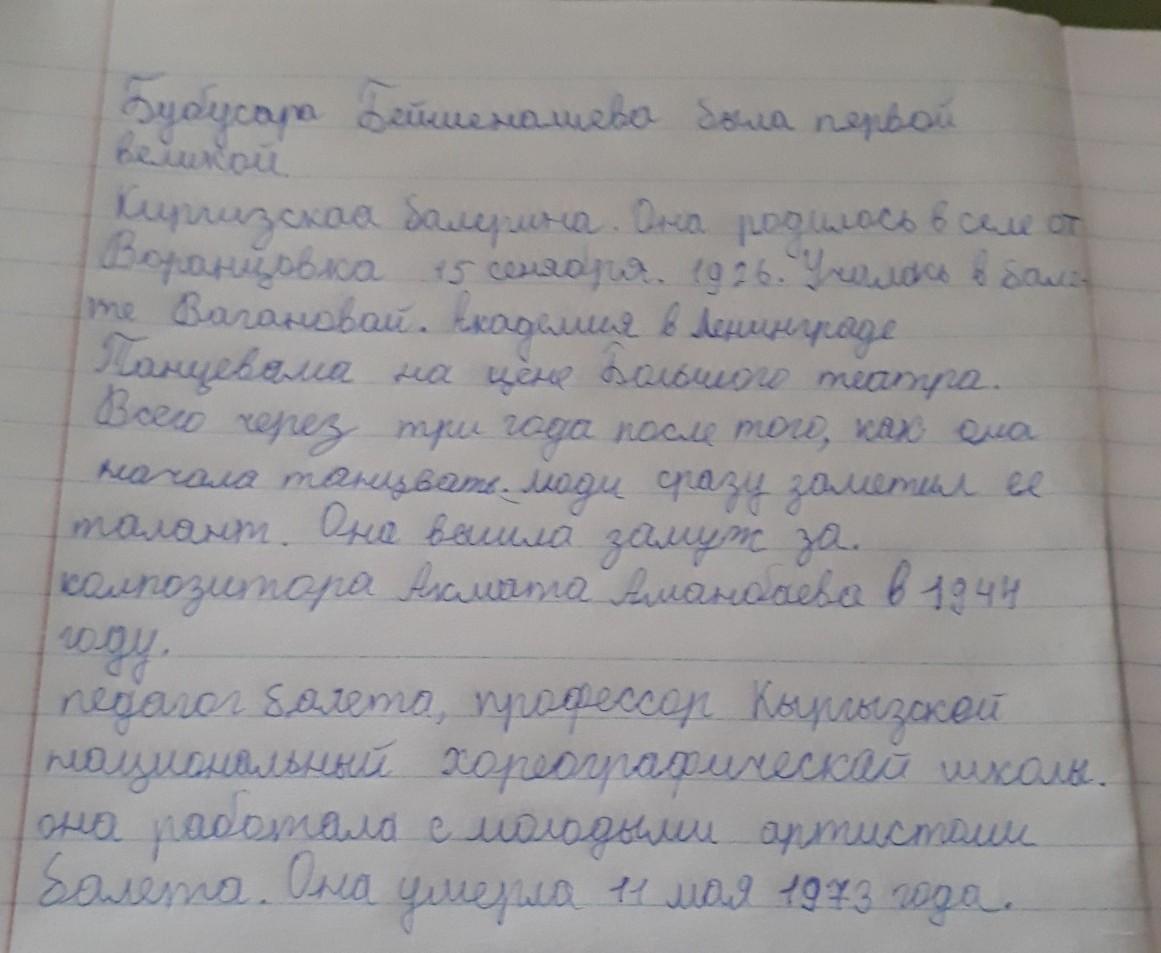 Бубусара Бейшеналиева была первой
великой
Киргизская балерина. Она родилось в селе от
Воранцовка 15 сенября. 1926. Училась в бале-
те Вагановай. Академия в Ленинграде
Танцевала на цене Большого театра.
Всего через три года после того, как она
начала танцвать. люди сразу заметил ее
талант. Она вышла замуж за.
композитора Ахмата Аманбаева в 1944
году.
педагог балета, професcор Кыргызской
национальный хореографическай школы.
она работала с молодыми артистами
балета. Она умерла 11 мая 1973 года.